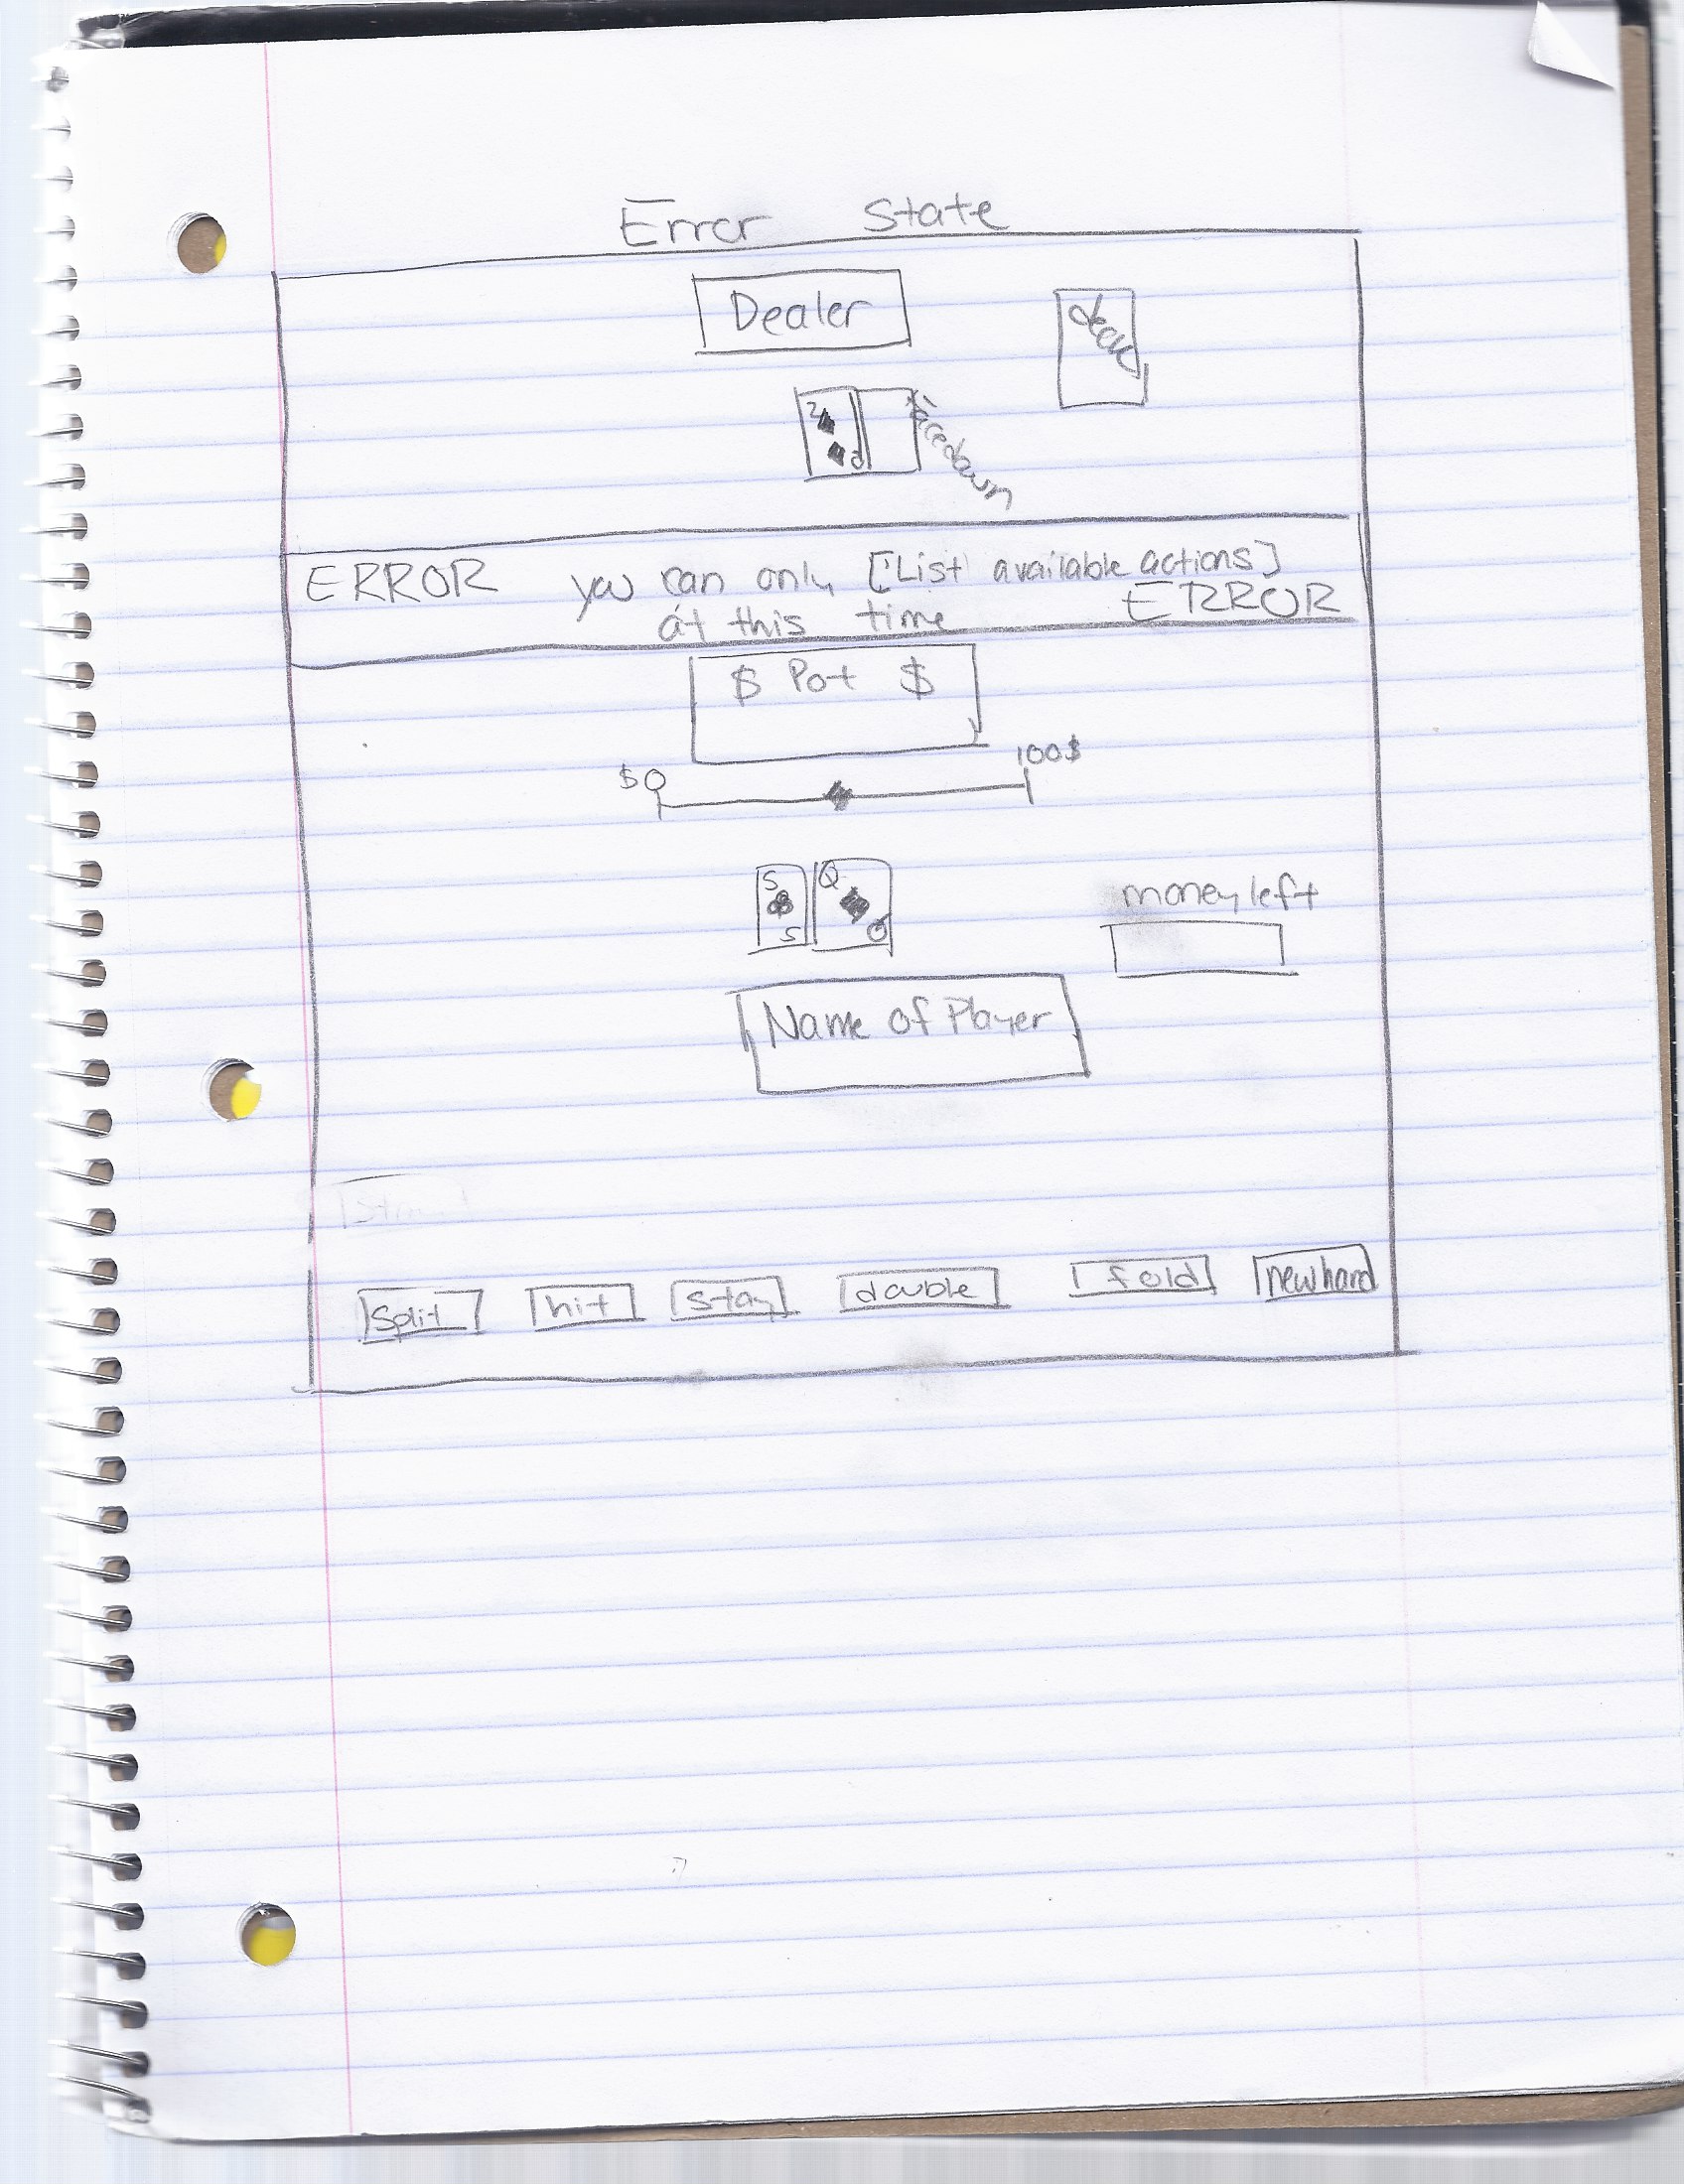 Error State
Dealer
deck
2
2
facedown
ERROR you can only [List available actions]
at this time ERROR
$ Pot $
$0 100$
5 Q
5 Q
money left
Name of Player
split hit stay double fold new hand